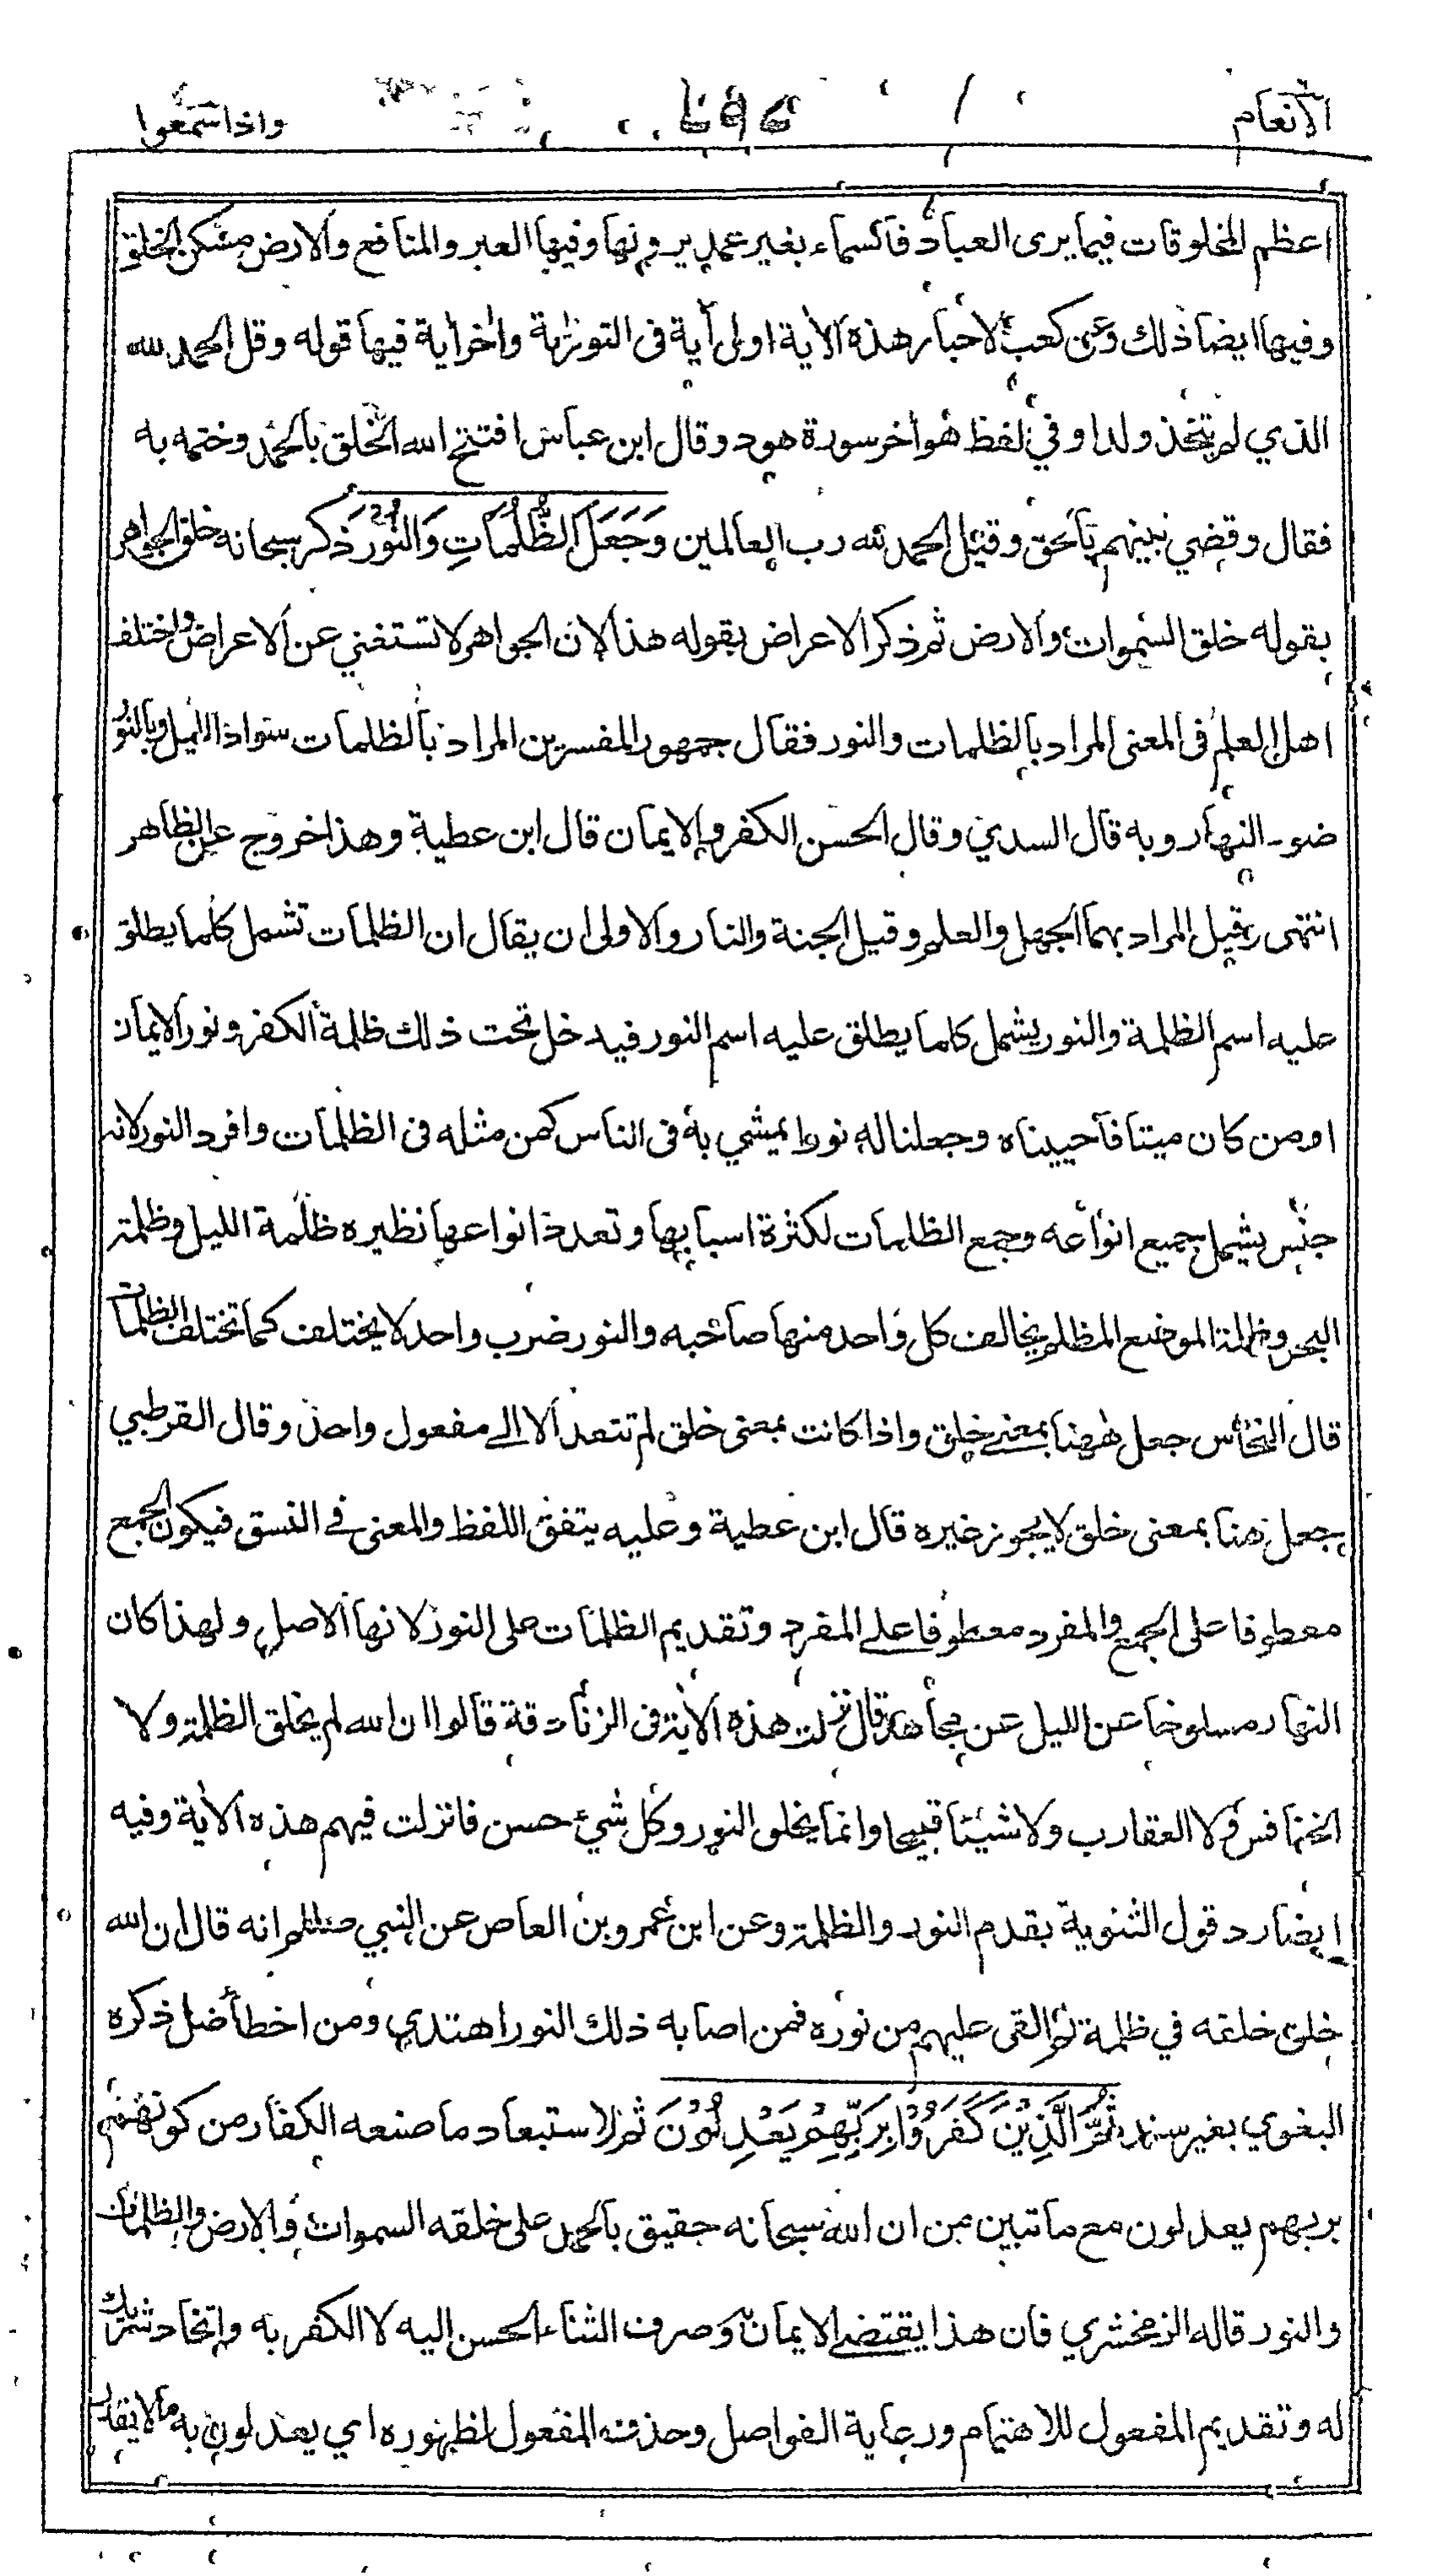 الأنعام ٦٩٤ واذا سمعوا
اعظم المخلوقات فيما يرى العباد فالسماء بغير عمد يرونها وفيها العبر والمنافع والارض مسكن الخلق
وفيها ايضا ذلك وعن كعب الاحبار هذه الاية اولى أية فى التوراية وأخر أية فيها قوله وقل الحمد لله
الذي لم يتخذ ولدا وفي لفظ هو أخر سورة هود وقال ابن عباس افتتح الله الخلق بالحمد وختمه به
فقال وقضي بينهم بالحق وقيل الحمد لله رب العالمين وَجَعَلَ الظُّلُمَاتِ وَالنُّوْرَ ذكر سبحانه خلق الجواهر
بقوله خلق السموات والارض ثم ذكر الاعراض بقوله هذا لان الجواهر لا تستغني عن الاعراض واختلف
اهل العلم فى المعنى المراد بالظلمات والنور فقال جمهور المفسرين المراد بالظلمات سواد الليل وبالنور
ضوء النهار وبه قال السدي وقال الحسن الكفر والايمان قال ابن عطية وهذا خروج عن الظاهر
انتهى وقيل المراد بهما الجهل والعلم وقيل الجنة والنار والاولى ان يقال ان الظلمات تشمل كلما يطلق
عليه اسم الظلمة والنور يشمل كلما يطلق عليه اسم النور فيدخل تحت ذلك ظلمة الكفر ونور الايمان
اومن كان ميتا فاحييناه وجعلنا له نورا يمشي به فى الناس كمن مثله فى الظلمات وافرد النور لانه
جنس يشمل جميع انواعه وجمع الظلمات لكثرة اسبابها وتعدد انواعها نظيره ظلمة الليل وظلمة
البحر وظلمة الموضع المظلم يخالف كل واحد منها صاحبه والنور ضرب واحد لا يختلف كما تختلف الظلمات
قال النحاس جعل ههنا بمعنے خلق واذا كانت بمعنى خلق لم تتعد الا الے مفعول واحد وقال القرطبي
جعل هنا بمعنى خلق لا يجوز غيره قال ابن عطية وعليه يتفق اللفظ والمعنى فے النسق فيكون الجمع
معطوفا على الجمع والمفرد معطوفا علے المفرد وتقديم الظلمات على النور لانها الاصل ولهذا كان
النهار مسلوخا عن الليل عن مجاهد قال نزلت هذه الاية فى الزنادقة قالوا ان الله لم يخلق الظلمة ولا
الخنافس ولا العقارب ولا شيئا قبيحا وانما يخلق النور وكل شيء حسن فانزلت فيهم هذه الاية وفيه
ايضا رد قول الثنوية بقدم النور والظلمة وعن ابن عمرو بن العاص عن النبي صللم انه قال ان الله
خلق خلقه في ظلمة ثم القى عليهم من نوره فمن اصابه ذلك النور اهتدي ومن اخطأ ضل ذكره
البغوي بغير سند ثُمَّ الَّذِيْنَ كَفَرُوْا بِرَبِّهِمْ يَعْدِلُوْنَ ثم لاستبعاد ما صنعه الكفار من كونهم
بربهم يعدلون مع ما تبين من ان الله سبحانه حقيق بالحمد على خلقه السموات والارض والظلمات
والنور قاله الزمخشري فان هذا يقتضے الايمان وصرف الثناء الحسن اليه لا الكفر به واتخاد شريك
له وتقديم المفعول للاهتمام ورعاية الفواصل وحذف المفعول لظهوره اي يعدلون به ما لا يقدر